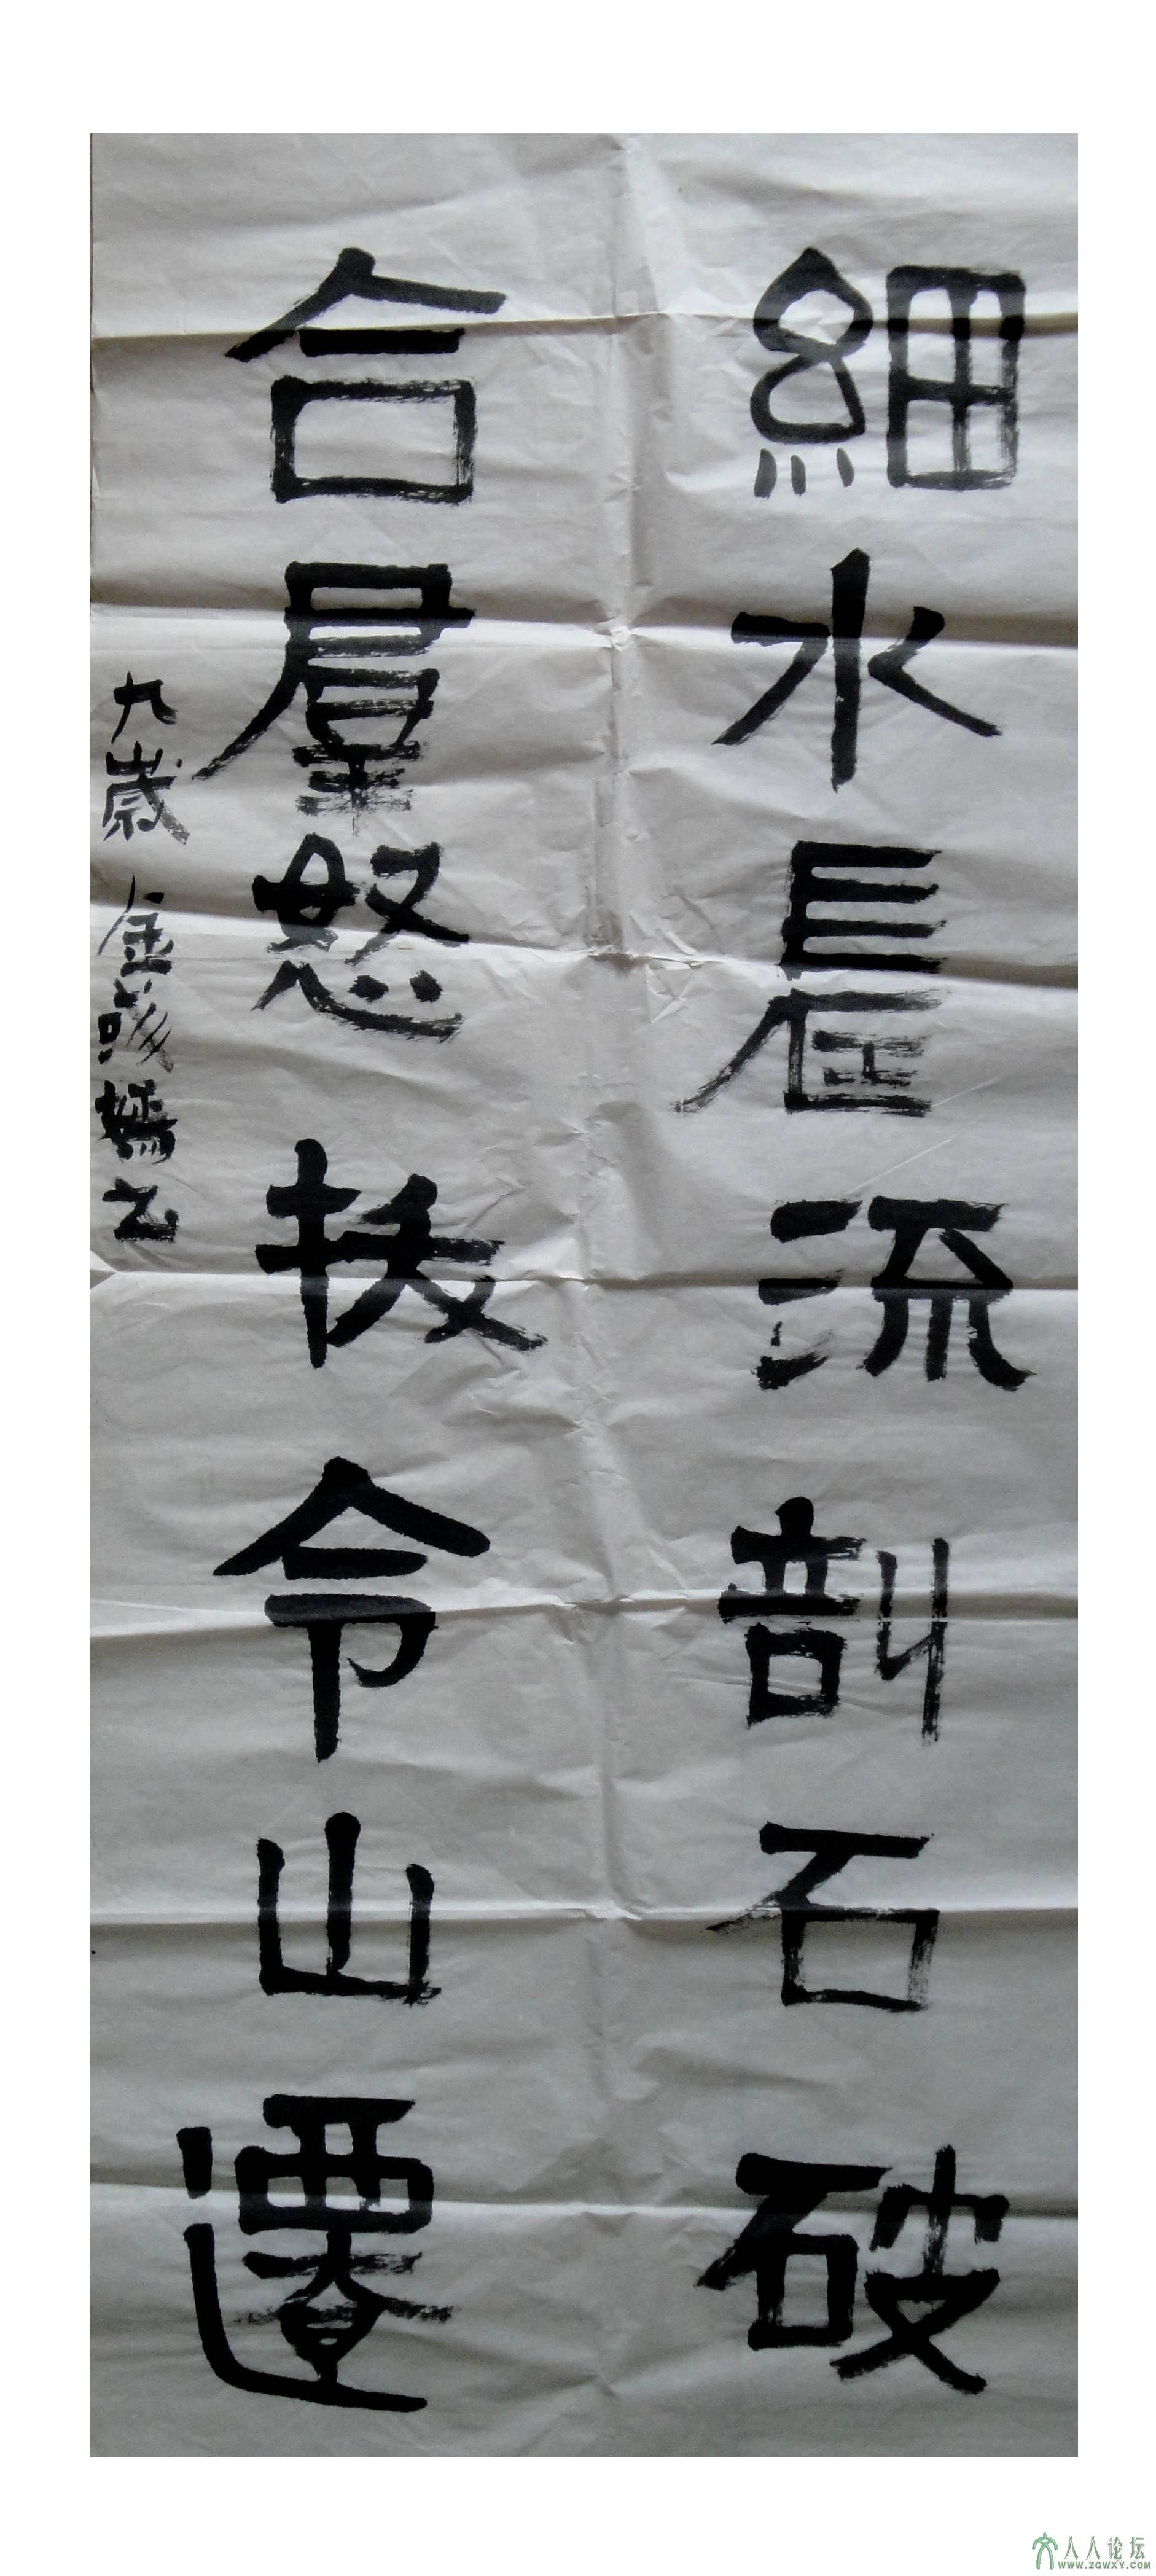 細水長流剖石破
合羣怒拔令山遷
九歲 金书
人人论坛
WWW.ZGWXY.COM